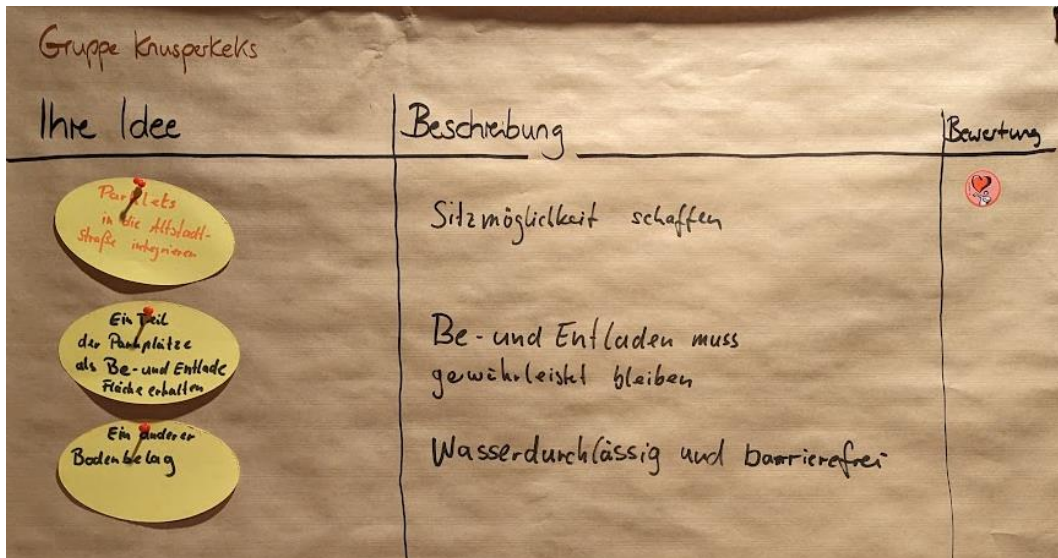 Gruppe Knusperkeks
Ihre Idee
Beschreibung
Bewertung
Parklets
in die Altstadt-
straße integrieren
Sitzmöglichkeit schaffen
Ein Teil
der Parkplätze
als Be- und Entlade
Fläche erhalten
Be- und Entladen muss
gewährleistet bleiben
Ein anderer
Bodenbelag
Wasserdurchlässig und barrierefrei